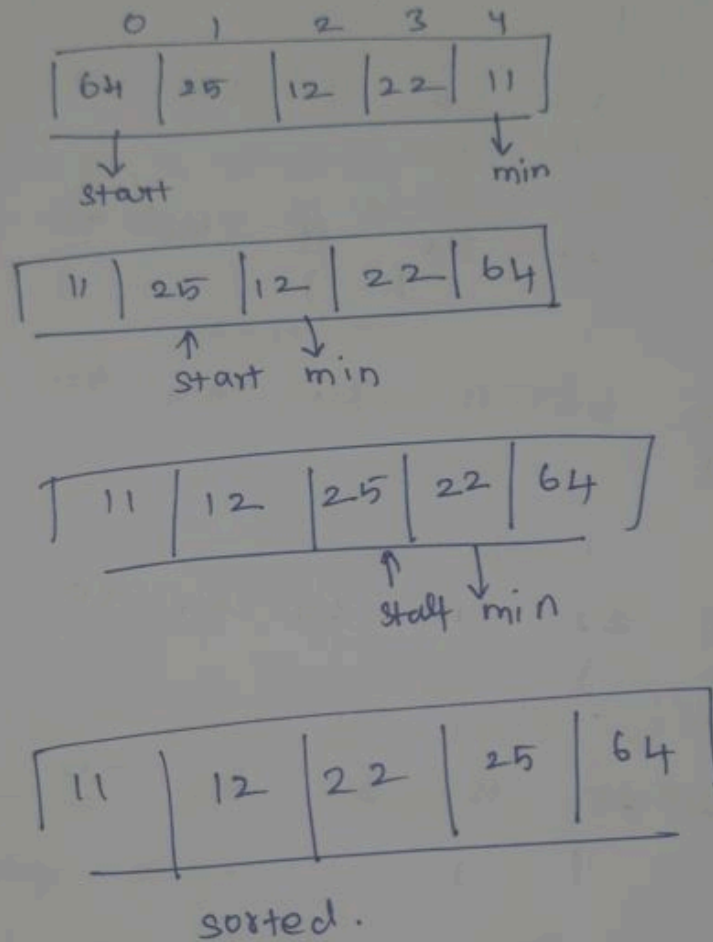 0 1 2 3 4
64 25 12 22 11
start min
11 25 12 22 64
start min
11 12 25 22 64
start min
11 12 22 25 64
sorted.